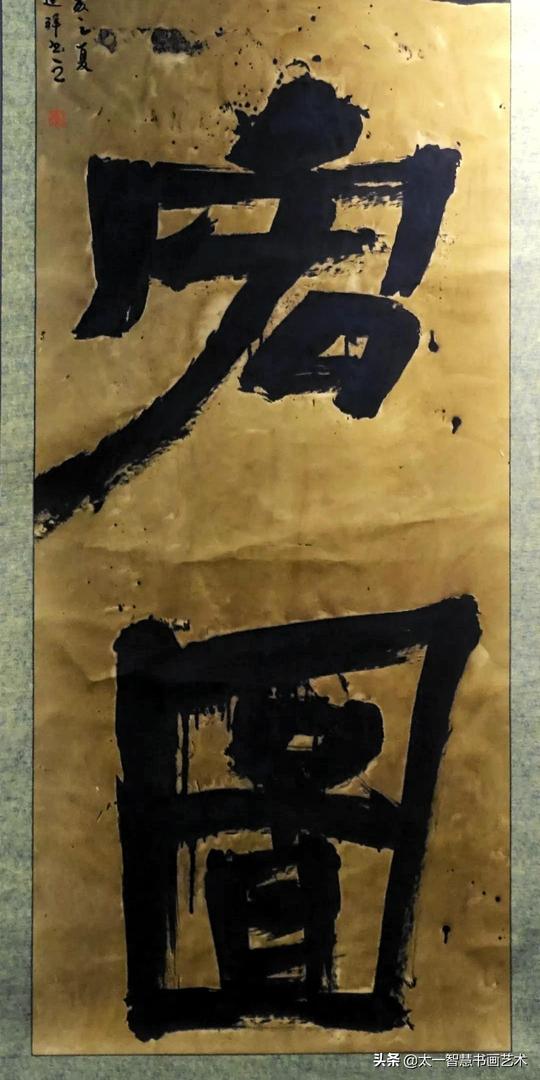 宏
圖
之夏
祥书
头条 @太一智慧书画艺术